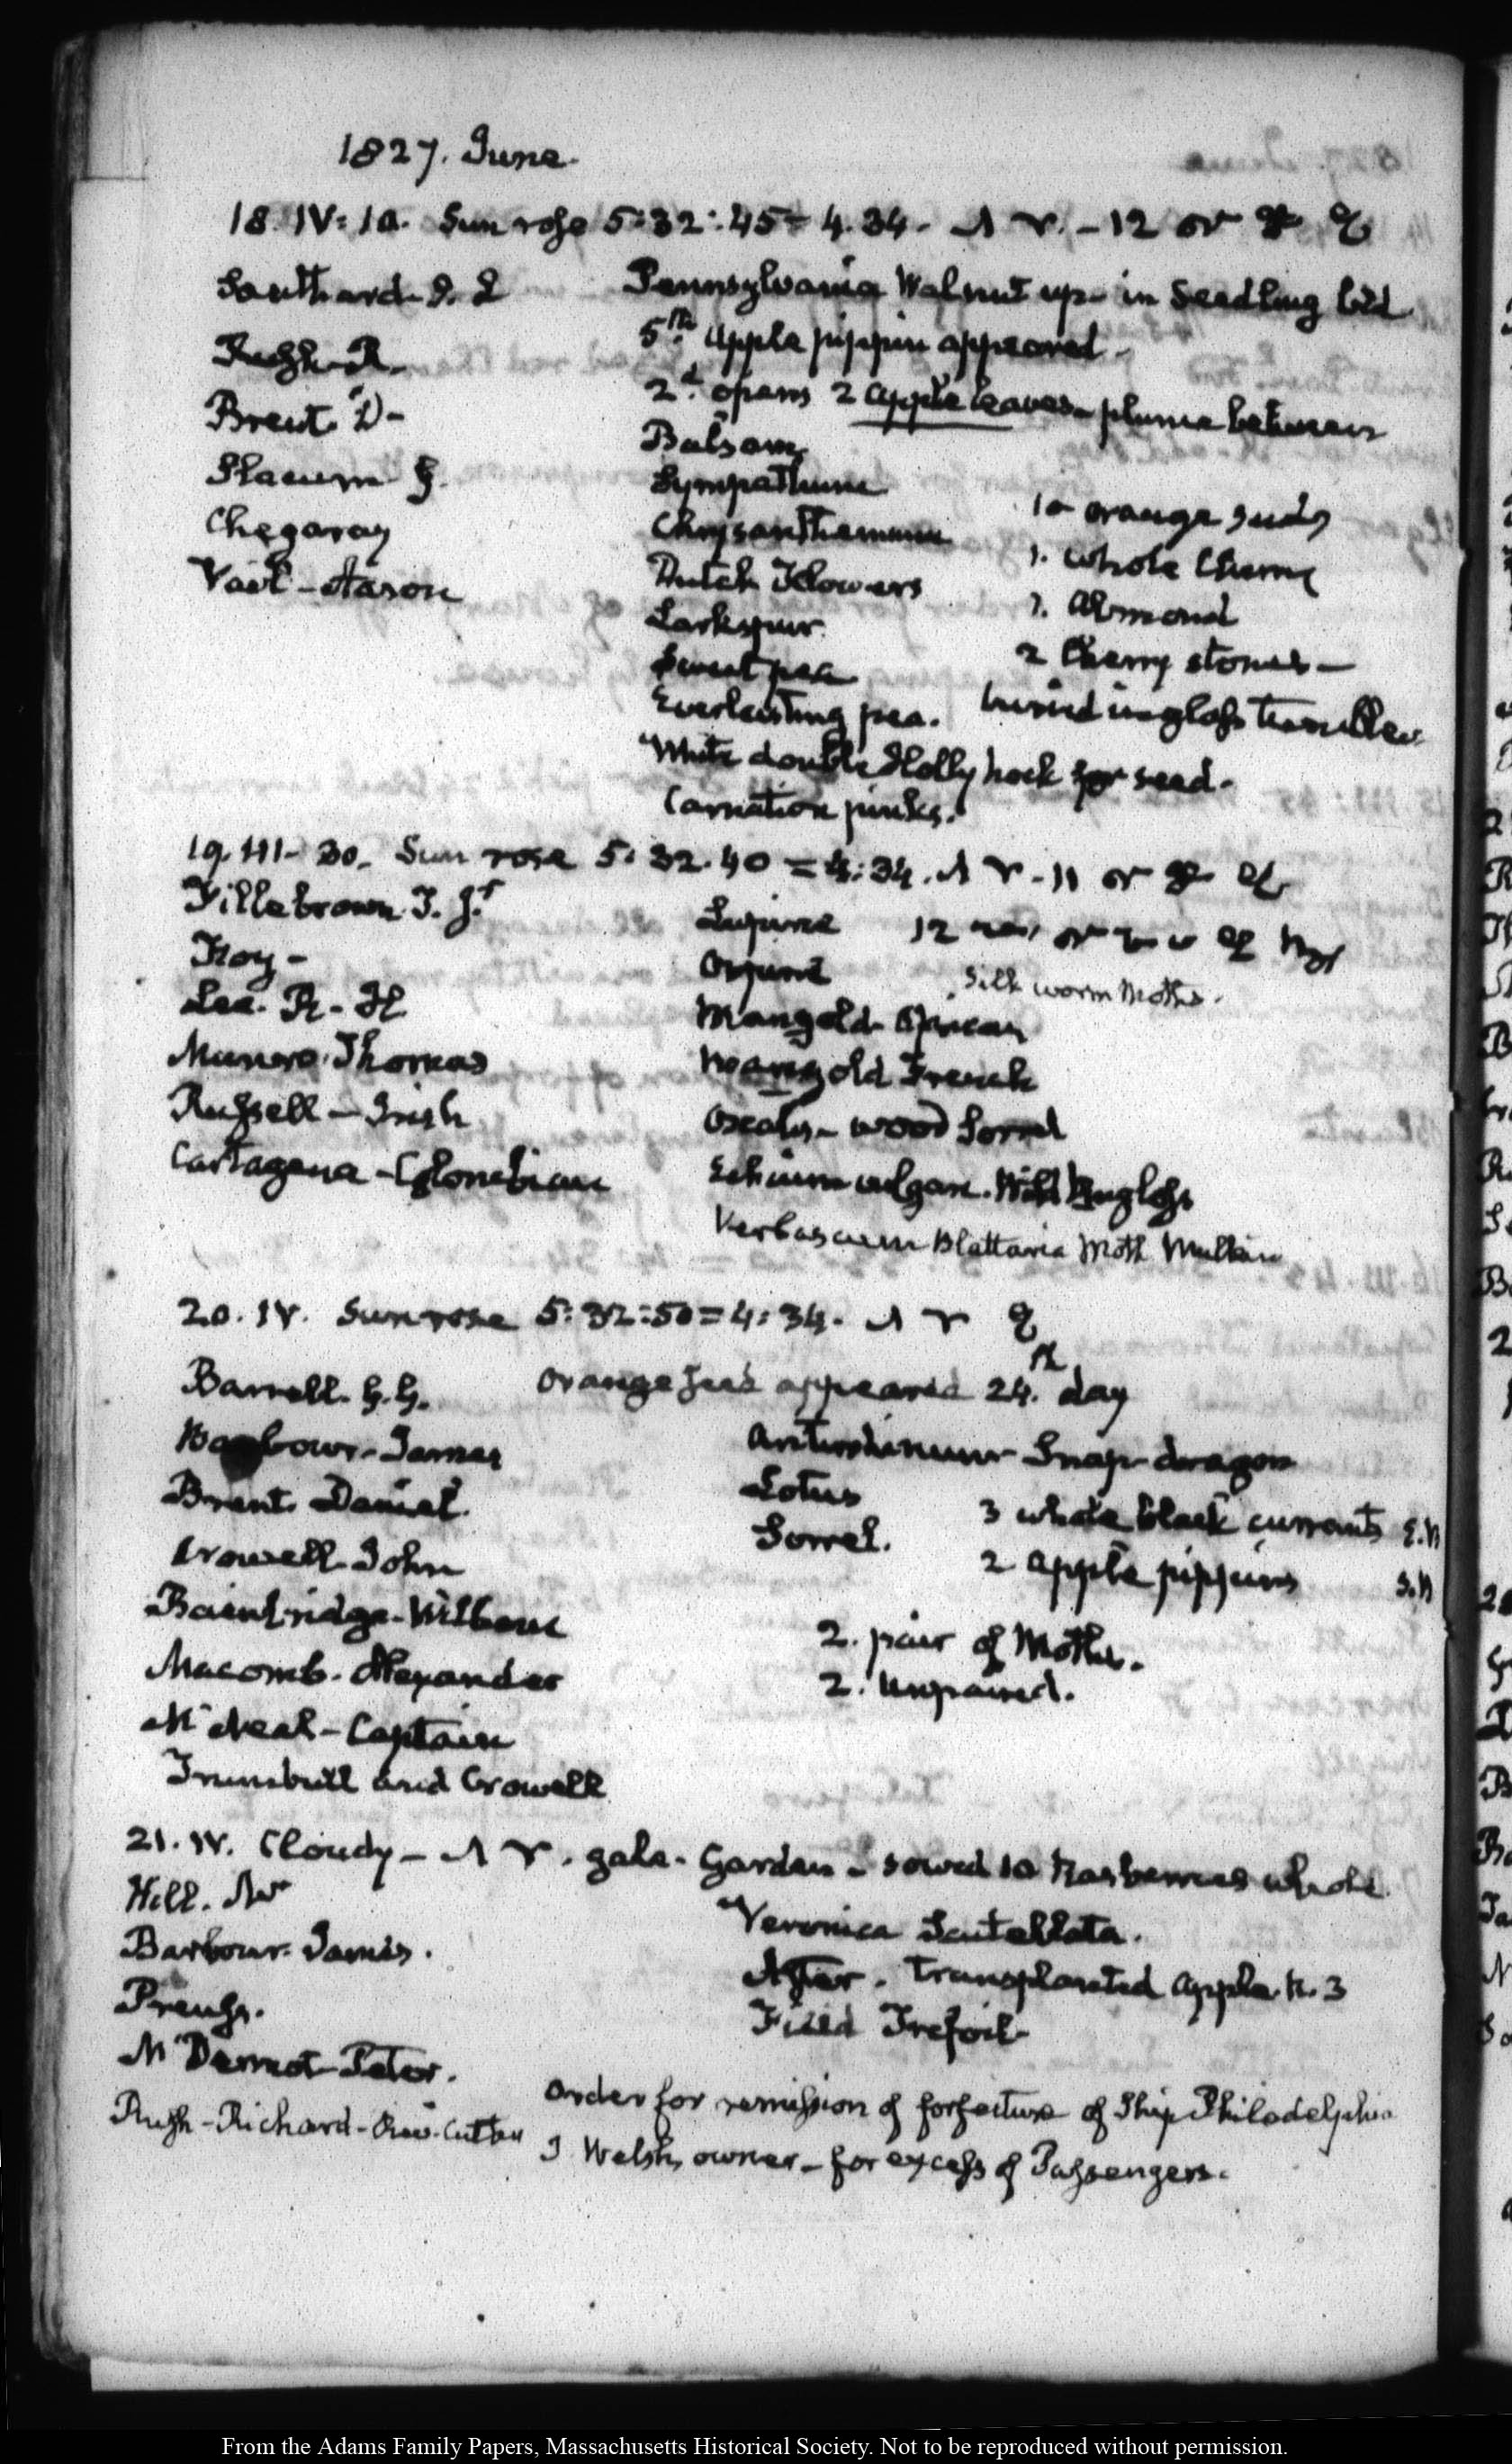 1827. June.
18. IV: 10. Sun rose 5:32:45 = 4.34. - 12 or
Southard. S. L
Rush. R.
Brent. D-
Slacum G.
Chegaray
Vail - Aaron
Pennsylvania Walnut up- in Seedling bed
5th. apple pippin appeared-
2d. opens 2 apple leaves- plume between
Balsam
Chrysanthemum
Dutch Flowers
Larkspur.
Sweet pea
Everlasting pea.
White double Holly hock for seed.
Carnation pinks.
10 orange seeds
1. whole Cherry
1. Almond
2 Cherry stones-
buried in glass tumbler
19. III- 30. Sun rose 5:32.40 = 4:34. - 11 or
Fillebrown. T. Jr.
Roy -
Lee. R. H
Munro. Thomas
Russell - Irish
Cartagena - Colombian
Lupine 12 or
Orpine
Silk worm Moths.
Marigold African
Marigold French
Oxalis - wood Sorrel
Echium vulgare. Wild Bugloss
Verbascum Blattaria Moth Mullein
20. IV. Sun rose 5:32:50 = 4:34.
Barrell. G. G. Orange seed appeared 24.th day
Barbour- James
Brent. Daniel.
Crowell. John
Bainbridge - William
Macomb. Alexander
McNeal - Captain
Trumbull and Crowell
Antirrhinum Snap-dragon
Lotus
Sorrel.
3 whole black currants
2 apple pippins
2. pair of Moths.
2. Unpaired.
21. IV. Cloudy - gale. Garden - sowed 10 Rasberries whole
Hill. Mr
Barbour. James.
Preuss.
McDermot - Peter.
Rush - Richard - Cutter
Veronica Scutellata.
After. Transplanted Apple. N. 3
Field Trefoil-
Order for remission of forfeiture of Ship Philadelphia
J Welsh, owner - for excess of Passengers.
From the Adams Family Papers, Massachusetts Historical Society. Not to be reproduced without permission.